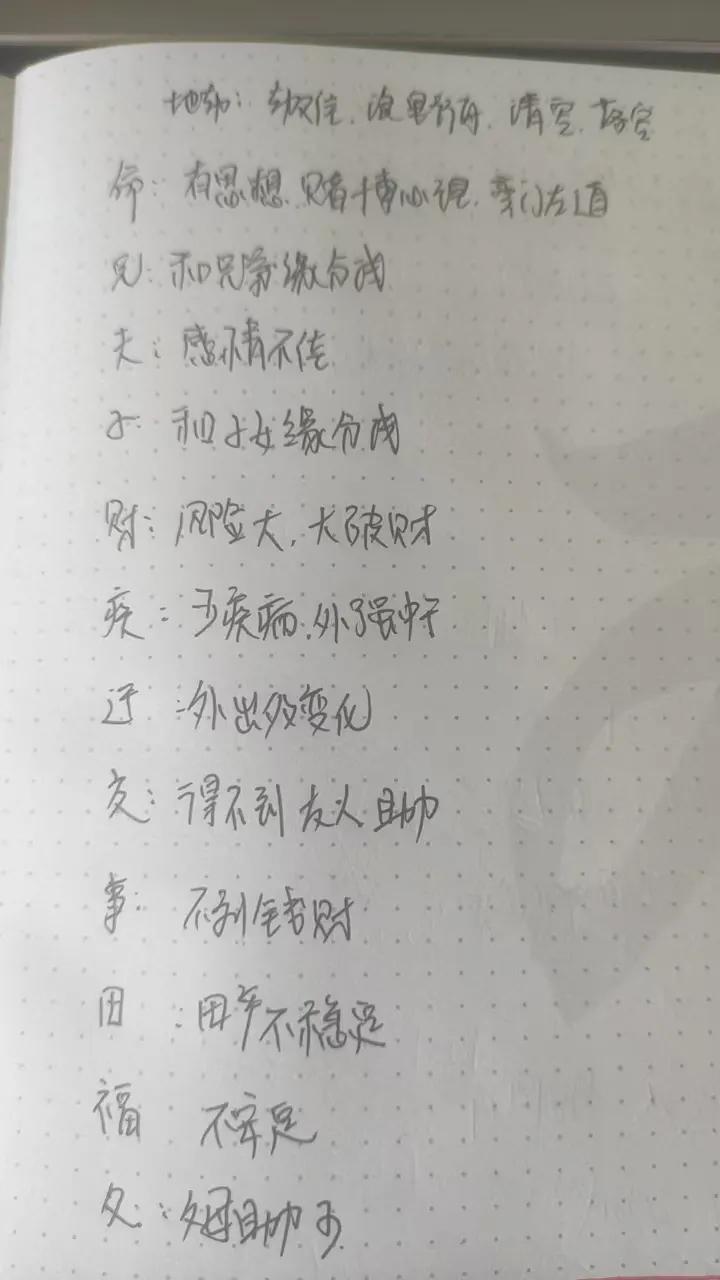 地劫: 劫仨, 浪里行舟, 清空, 苦空
命: 有思想, 赌博心理, 旁门左道
兄: 和兄弟缘分浅
夫: 感情不佳
子: 和子女缘分浅
财: 风险大, 大破财
疾: 多疾病, 外强中干
迁: 外出多变化
友: 得不到友人助
事: 不利钱财
田: 田宅不稳定
福 不安定
父: 父母助少